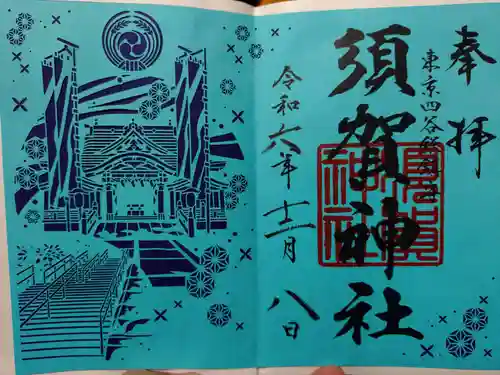 奉拝
東京四谷総鎮守
須賀神社
令和六年十二月八日
須賀神社